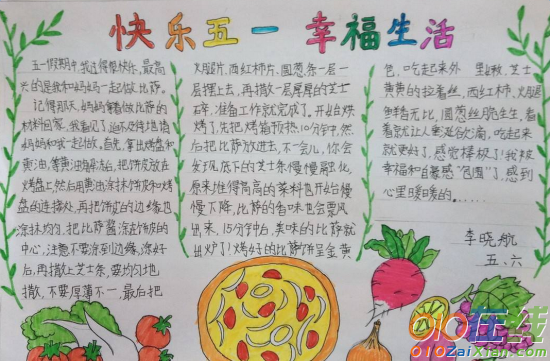 快乐五一 幸福生活
五一假期中,我过得很快乐,最高
兴的是我和妈妈一起做比萨。
记得那天,妈妈拿着做比萨的
材料回家,我看见了,迫不及待地催
妈妈和我一起做。首先,拿出烤盘和
黄油,等黄油解冻后,把饼皮放在
烤盘上,然后用黄油涂抹饼皮和烤
盘的连接处,再把饼皮的边缘也
涂抹均匀,把比萨酱涂在饼皮的
中心,注意不要涂到边缘,涂好
后,再撒上芝士条,要均匀地
撒,不要厚薄不一,最后把
火腿片、西红柿片、圆葱条一层一
层摆上去,再撒一层厚厚的芝士
碎,准备工作就完成了。开始烘
烤了,先把烤箱预热10分钟,然
后把比萨放进去,不一会儿,你会
发现底下的芝士条慢慢融化,
原来堆得高高的菜料也开始慢
慢下降,比萨的香味也会飘
出来,15分钟后,美味的比萨就
出炉了!烤好的比萨饼呈金黄
色,吃起来外 里软,芝士
黄黄的拉着丝,西红柿、火腿
鲜香无比,圆葱丝脆生生,看
着就让人垂涎欲滴,吃起来
就更好了,感觉棒极了!我被
幸福和自豪感“包围”了,感到
心里暖暖的……
李晓航
五、六
010在线
010zaixian.com